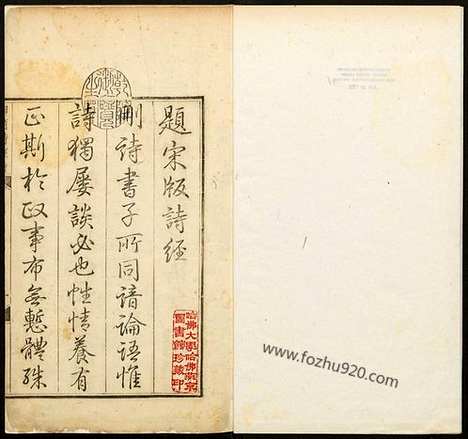 題宋版詩經
刪詩書子所同諳論語惟
詩獨屢談必也性情養有
正斯於政事布無慙體殊
哈佛大學哈佛燕京
圖書館珍藏印
www.fozhu920.com